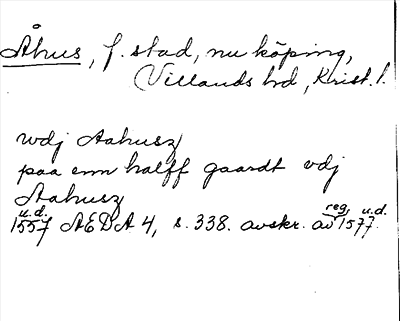 Åhus, f. stad, nu köping,
Villands hd, Krist. l.
wdj Aahusz
paa enn halff gaardt vdj
Aahusz
u.d. reg. u.d.
1557 AEDA 4, s. 338. avskr. av 1577.